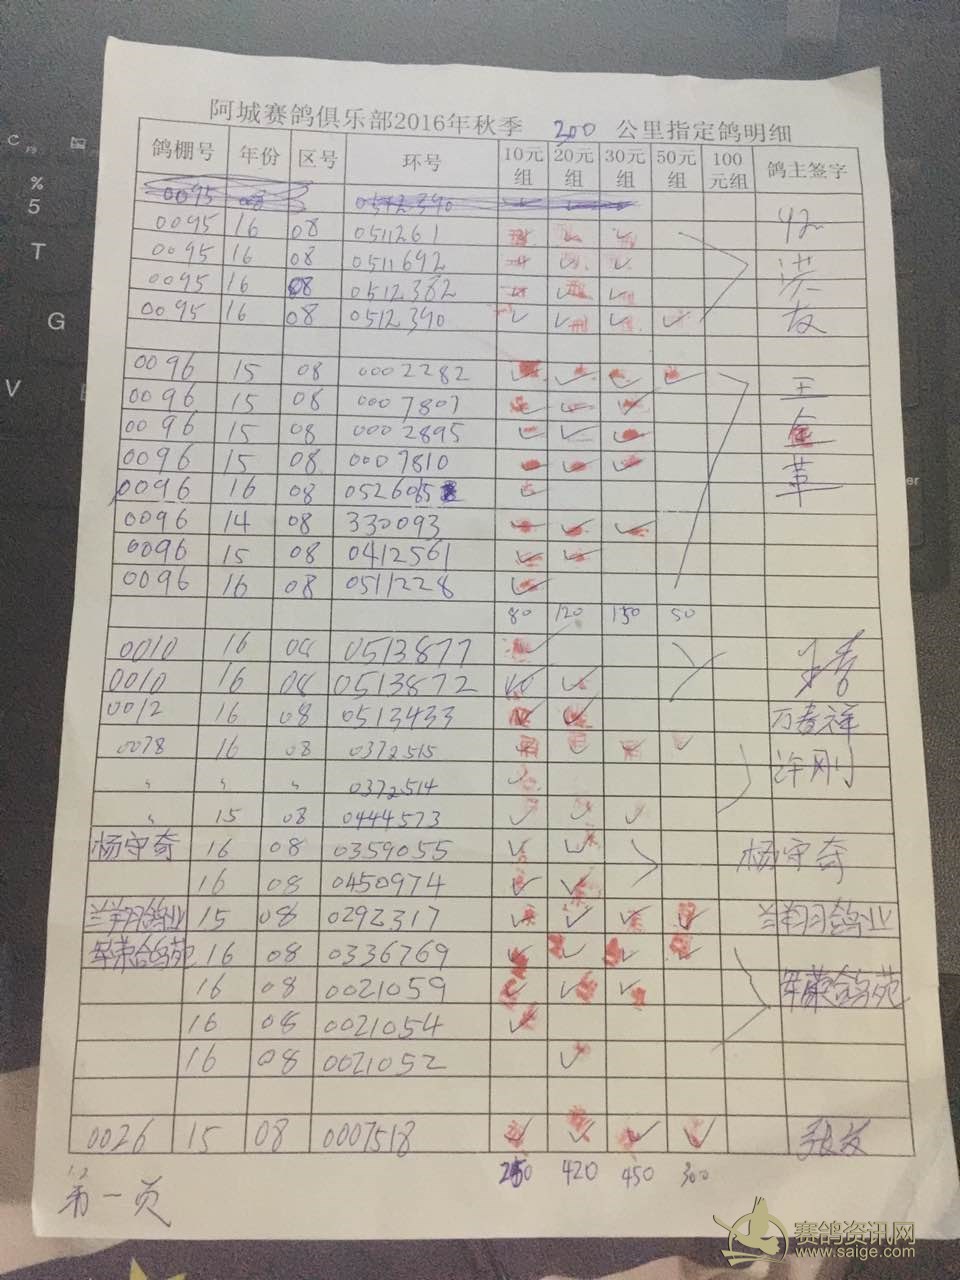 阿城赛鸽俱乐部2016年秋季 200 公里指定鸽明细
鸽棚号 年份 区号 环号 10元组 20元组 30元组 50元组 100元组 鸽主签字
0095 08 0512390
0095 16 08 0511261
0095 16 08 0511692
0095 16 08 0512382
0095 16 08 0512390 友
0096 15 08 0002282 王
0096 15 08 0007807
0096 15 08 0002895 金
0096 15 08 0007810 革
0096 16 08
0096 14 08 330093
0096 15 08 0412561
0096 16 08 0511228
80 120 150 50
0010 16 08 0513877
0010 16 08 0513872
0012 16 08 0513433 万春祥
0078 16 08 0372515 许刚
〃 〃 〃 0372514
〃 15 08 0444573
杨守奇 16 08 0359055 杨守奇
16 08 0450974
兰翔鸽业 15 08 0292317 兰翔鸽业
军荣鸽苑 16 08 0336769
16 08 0021059 军荣鸽苑
16 08 0021054
16 08 0021052
0026 15 08 0007518
420 450 300
第一页
赛鸽资讯网
www.saige.com
C
%
5
T
G
V